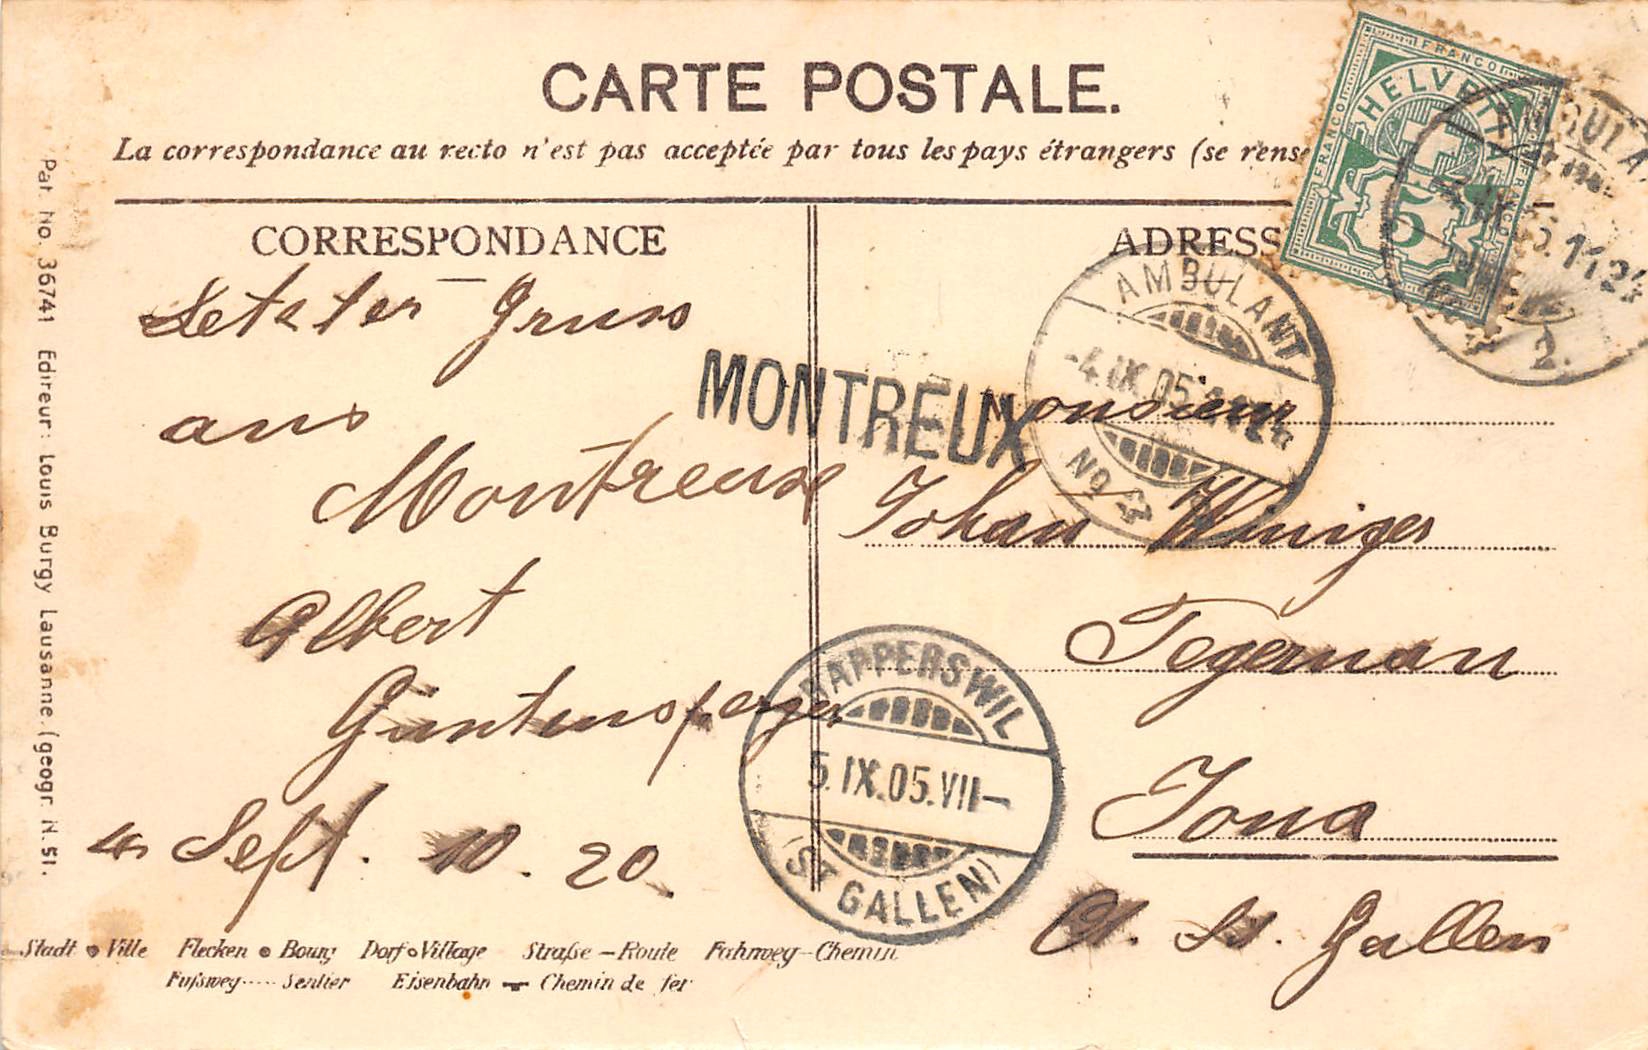 CARTE POSTALE.
La correspondance au recto n'est pas acceptée par tous les pays étrangers (se rense
CORRESPONDANCE
Letzter Gruss
aus
Montreux
Albert
Güntensperger
4 Sept. 10.20.
ADRESS
Monsieur
Johan Winiger
Tegernau
Jona
Ct. St. Gallen
HELVETIA
FRANCO
FRANCO
FRANCO
5
AMBULANT
4.IX.05
No
MONTREUX
AMBULA
2.
RAPPERSWIL
5.IX.05.VII—
(ST GALLEN)
Pat. No. 36741 Editeur: Louis Burgy Lausanne (geogr. N. 51.
Stadt Ville Flecken Bourg Dorf Village Straße — Route Fahrweg — Chemin
Fußweg ..... Sentier Eisenbahn Chemin de fer